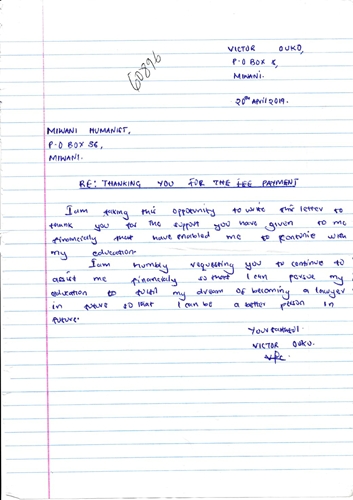 VICTOR OUKO,
P.O BOX 8,
MIWANI.
60896
20th April 2019.
MIWANI HUMANIST,
P.O BOX 86,
MIWANI.
RE: THANKING YOU FOR THE FEE PAYMENT
I am taking this opportunity to write this letter to
thank you for the support you have given to me
financialy that have enabled me to continue with
my education.
I am humbly requesting you to continue to
assist me financialy so that I can persue my
education to fulfil my dream of becoming a lawyer
in future so that I can be a better person in
future.
Your faithful.
VICTOR OUKO.